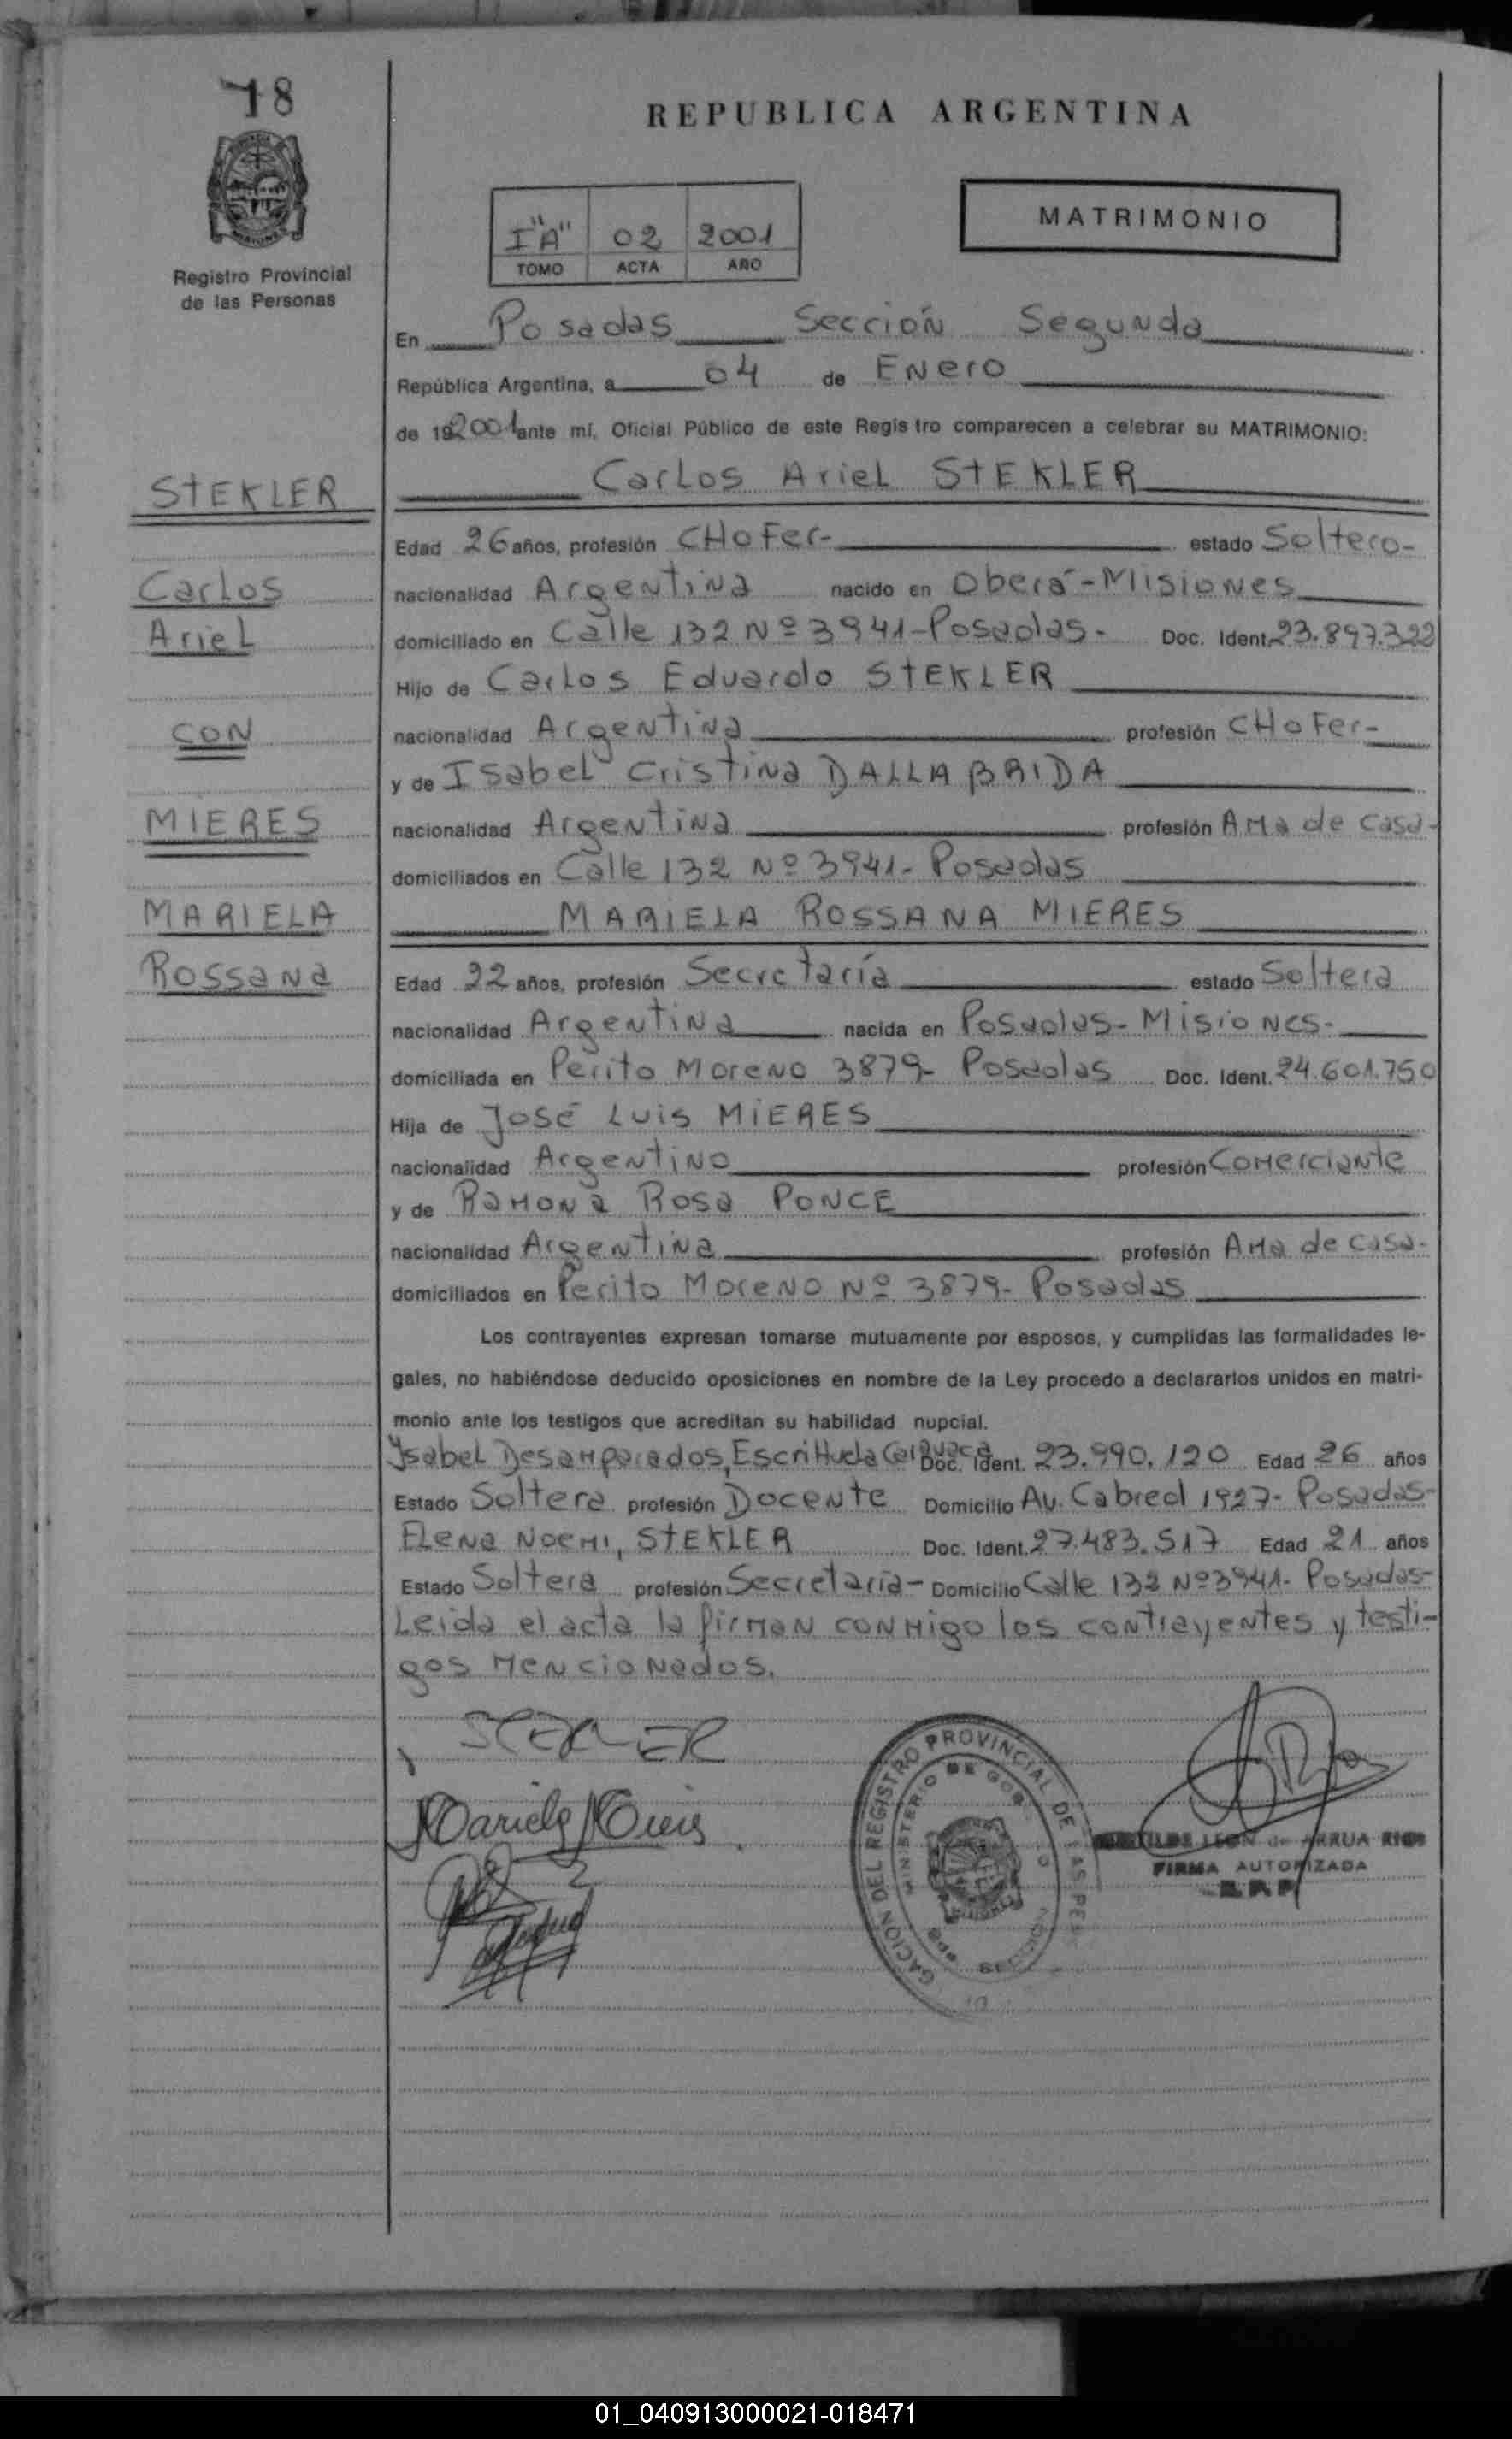 18
REPUBLICA ARGENTINA
I "A" 02 2001
TOMO ACTA AÑO
MATRIMONIO
Registro Provincial
de las Personas
En Posadas Sección Segunda
República Argentina, a 04 de Enero
de 19 2001 ante mí, Oficial Público de este Registro comparecen a celebrar su MATRIMONIO:
STEKLER
Carlos Ariel STEKLER
Edad 26 años, profesión CHOFer- estado Soltero-
Carlos
nacionalidad Argentina nacido en Oberá-Misiones
Ariel
domiciliado en Calle 132 Nº 3941-Posadas- Doc. Ident. 23.897.322
Hijo de Carlos Eduardo STEKLER
CON
nacionalidad Argentina profesión CHOFer-
y de Isabel Cristina DALLA BRIDA
MIERES
nacionalidad Argentina profesión AMa de casa-
domiciliados en Calle 132 Nº 3941- Posadas
MARIELA
MARIELA ROSSANA MIERES
Rossana
Edad 22 años, profesión Secretaría estado Soltera
nacionalidad Argentina nacida en Posadas- Misiones-
domiciliada en Perito Moreno 3879- Posadas Doc. Ident. 24.601.750
Hija de José Luis MIERES
nacionalidad Argentino profesión Comerciante
y de Ramona Rosa PONCE
nacionalidad Argentina profesión AMa de casa-
domiciliados en Perito Moreno Nº 3879- Posadas
Los contrayentes expresan tomarse mutuamente por esposos, y cumplidas las formalidades le-
gales, no habiéndose deducido oposiciones en nombre de la Ley procedo a declararlos unidos en matri-
monio ante los testigos que acreditan su habilidad nupcial.
Ysabel Desamparados, Doc. Ident. 23.990.120 Edad 26 años
Estado Soltera profesión Docente Domicilio Av. Cabred 1927- Posadas-
Elena Noemi, STEKLER Doc. Ident. 27.483.517 Edad 21 años
Estado Soltera profesión Secretaría- Domicilio Calle 132 Nº3941- Posadas-
Leida el acta la firman conmigo los contrayentes y testi-
gos mencionados.
STEKLER
Mariela Mieres
DEL REGISTRO PROVINCIAL DE LAS
MINISTERIO DE
LEON de ARRUA RIOS
FIRMA AUTORIZADA
01_040913000021-018471